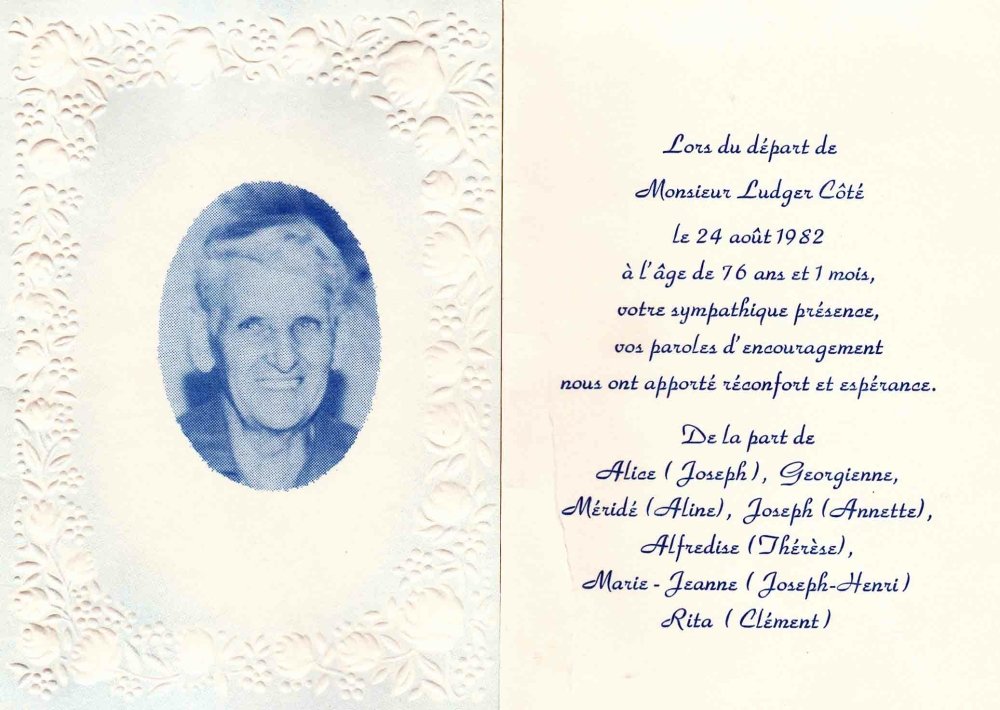 Lors du départ de
Monsieur Ludger Côté
le 24 août 1982
à l'âge de 76 ans et 1 mois,
votre sympathique présence,
vos paroles d'encouragement
nous ont apporté réconfort et espérance.
De la part de
Alice (Joseph), Georgienne,
Méridé (Aline), Joseph (Annette),
Alfredise (Thérèse),
Marie-Jeanne (Joseph-Henri)
Rita (Clément)